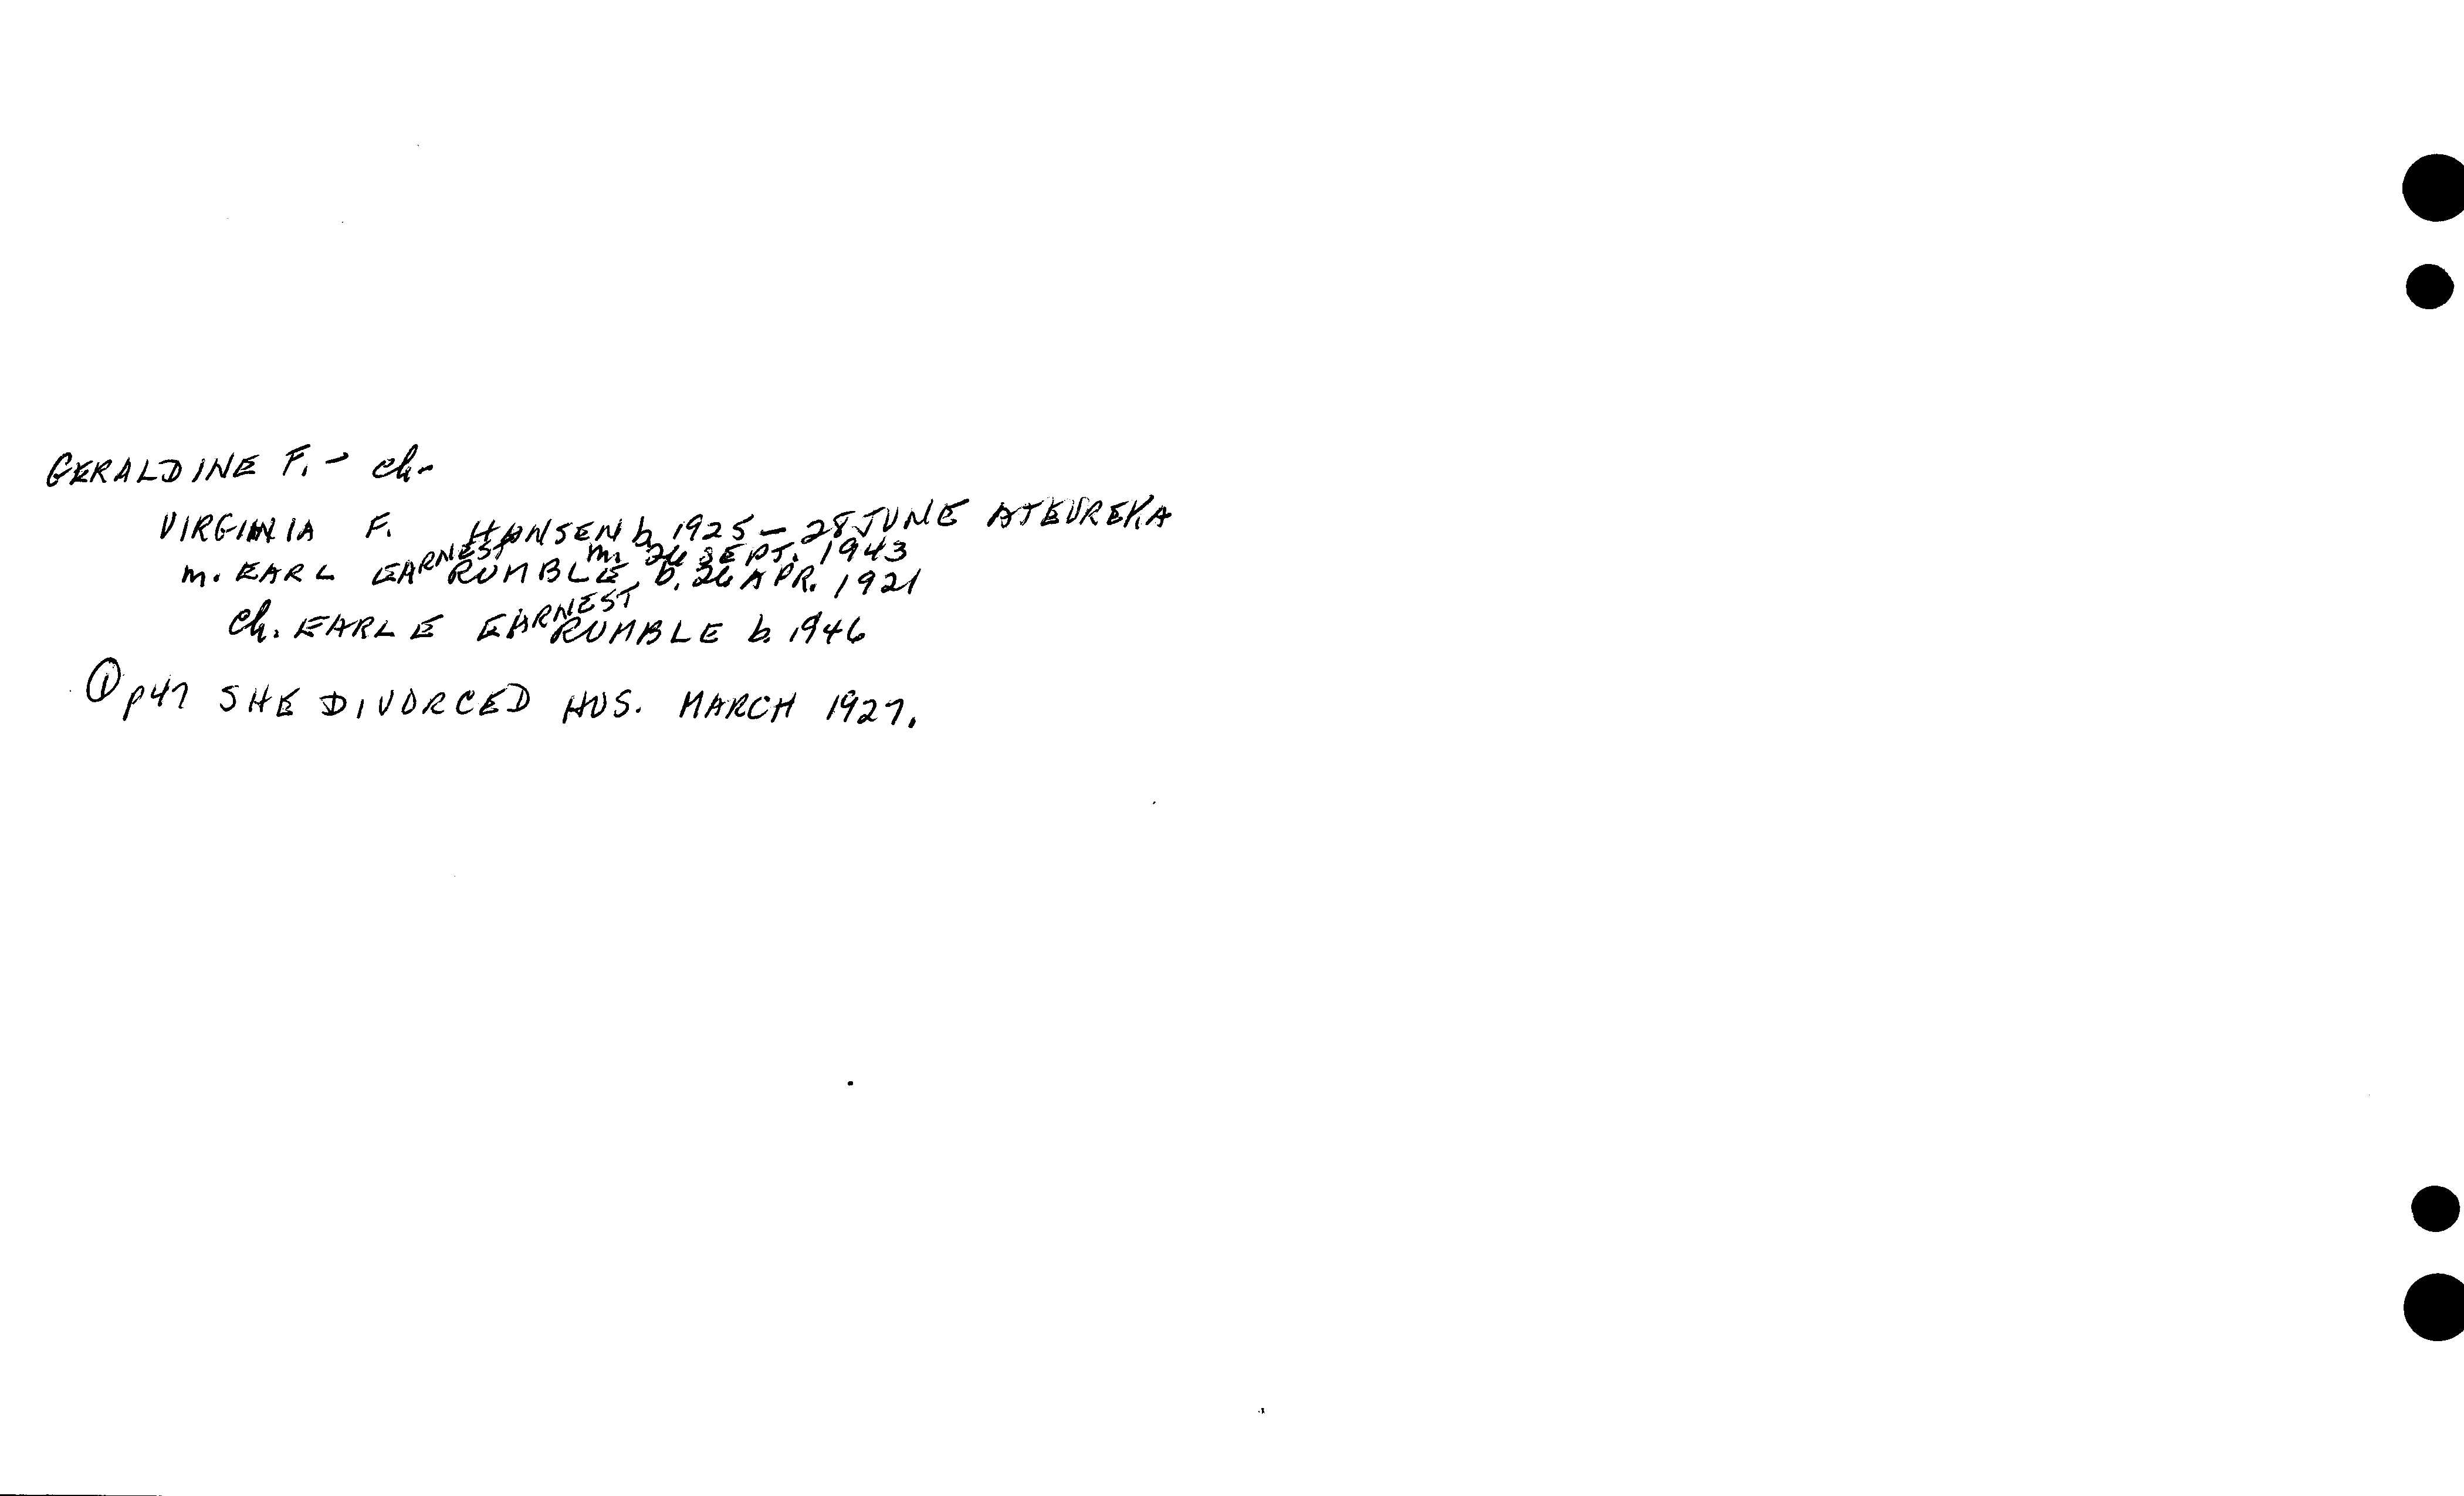 GERALDINE F. - ch.
VIRGINIA F. HANSEN b. 1925 - 28 JUNE AT EUREKA
m. 26 SEPT. 1943
m. EARL EARNEST RUMBLE, b. 26 APR. 1921
ch. EARLE EARNEST RUMBLE b. 1946
① p47 SHE DIVORCED HUS. MARCH 1927.